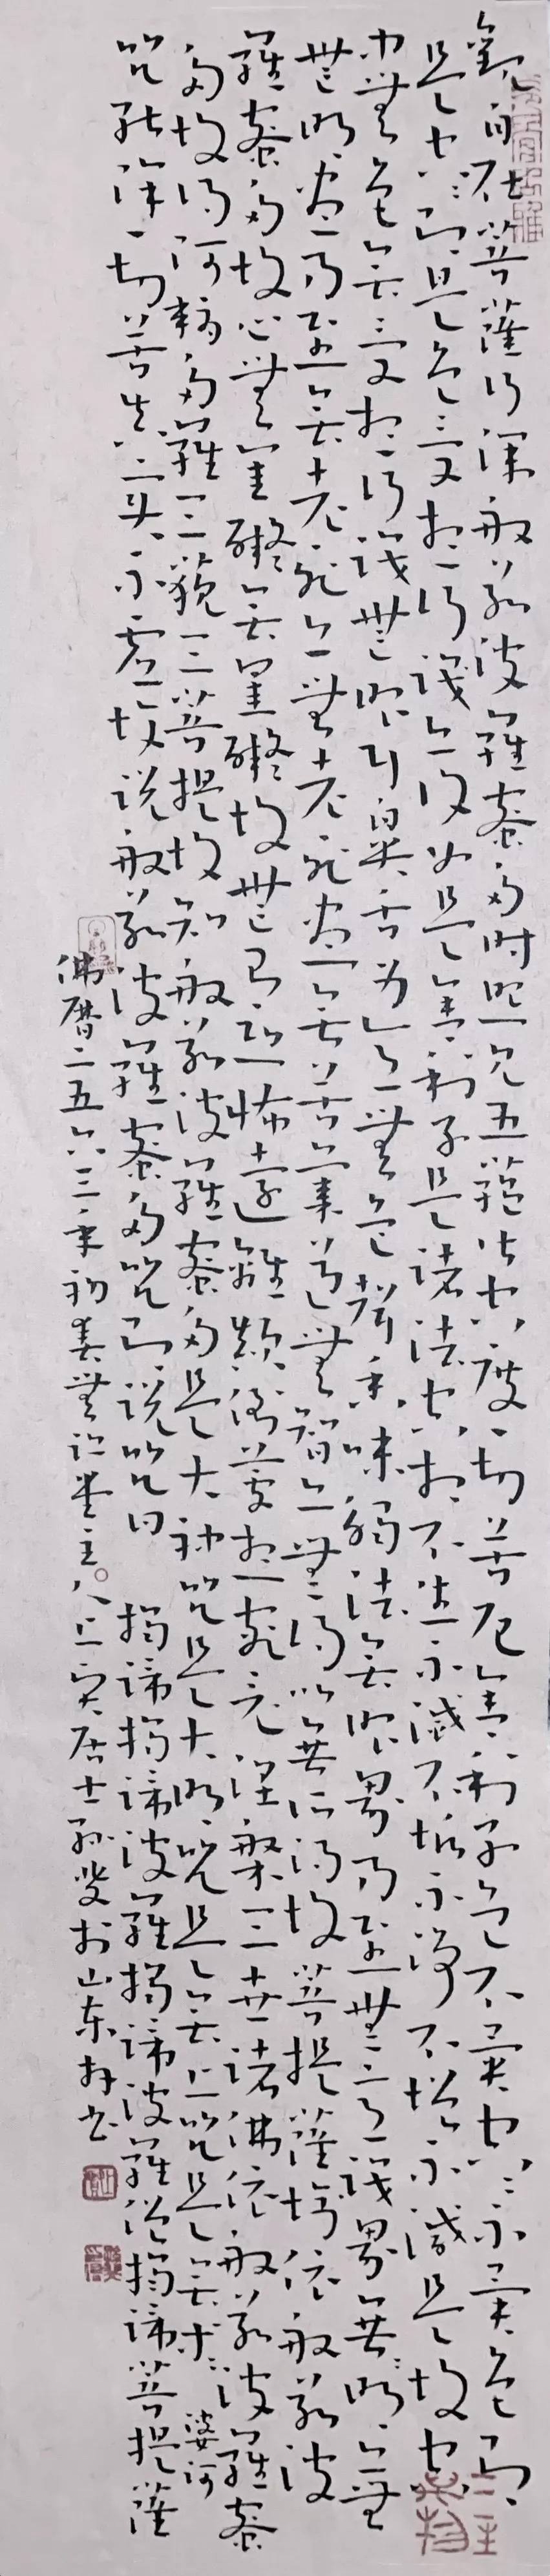 觀自在菩薩行深般若波羅蜜多時照見五蘊皆空度一切苦厄舍利子色不異空空不異色即
是空空即是色受想行識亦復如是舍利子是諸法空相不生不滅不垢不淨不增不減是故空
中無色無受想行識無眼耳鼻舌身意無色聲香味觸法無眼界乃至無意識界無無明亦無
無明盡乃至無老死亦無老死盡無苦集道無智亦無得以無所得故菩提薩埵依般若波
羅蜜多故心無罣礙無罣礙故無有恐怖遠離顛倒夢想究竟涅槃三世諸佛依般若波羅蜜
多故得阿耨多羅三藐三菩提故知般若波羅蜜多是大神咒是大明咒是無上咒是無等等
咒能除一切苦真實不虛故說般若波羅蜜多咒即說咒曰 揭諦揭諦波羅揭諦波羅僧揭諦菩提薩
婆訶
佛曆二五六三年初春無堂主居士於山東